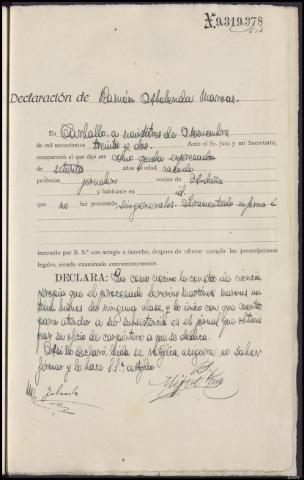 X.9.319.378
Declaración de Ramón Abelenda Marcos.
En Carballo a veintitres de Noviembre
de mil novecientos treinta y dos. Ante el Sr. Juez y mi Secretario,
compareció el que dijo ser como queda expresado
de setenta años de edad casado
profesión jornalero vecino de
y habitante en id.
que no fué procesado. Singenerales. Juramentado e informado
instruído por S. Sª con arreglo a derecho, despues de ofrecer cumplir las prescripciones
legales, siendo examinado convenientemente.
DECLARA: Que como vecino le consta de ciencia
propia que el procesado Severino Martinez Marcos no
tiene bienes de ninguna clase, y lo único con que cuenta
para atender a su subsistencia es el jornal que obtiene
por su oficio de carpintero a que se dedica.
Así lo declaró, leida se ratifica, asegura no saber
firmar y lo hace S. Sª certifico